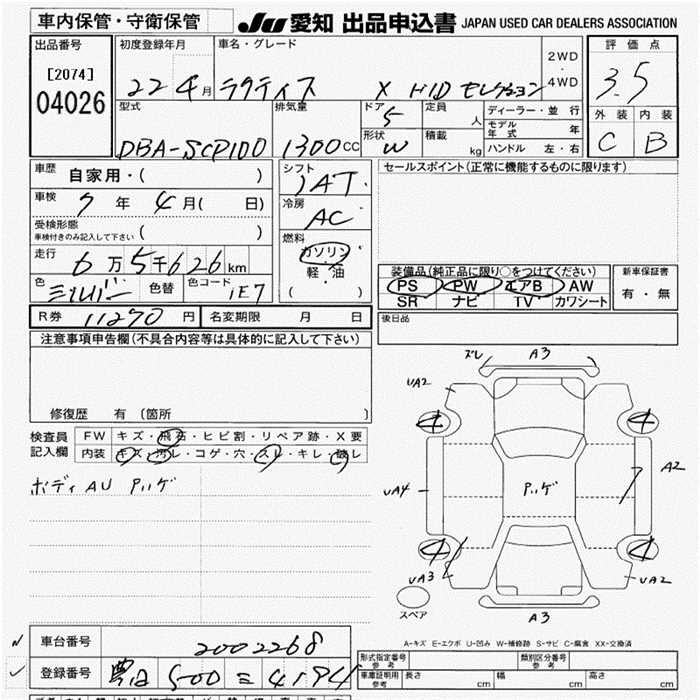 車内保管・守衛保管 JU 愛知 出品申込書 JAPAN USED CAR DEALERS ASSOCIATION
出品番号 [2074] 04026
初度登録年月 22 4月
車名・グレード ラクティス X HID セレクション
2WD・4WD
評価点 3.5
外装 C 内装 B
型式 DBA-SCP100
排気量 1300cc
ドア 5 形状 W
定員 人 積載 kg
ディーラー・並行
モデル年式 年
ハンドル 左・右
車歴 自家用・( )
車検 7年 4月( 日)
受検形態 車検付きのみ記入して下さい ( )
走行 6万5千626km
色 シルバー 色替 色コード 1E7
シフト IAT
冷房 AC
燃料 ガソリン 軽・油 ( )
セールスポイント(正常に機能するものに限ります)
装備品(純正品に限り○をつけてください)
PS PW エアB AW
SR ナビ TV カワシート
新車保証書 有・無
後日品
R券 11270円 名変期限 月 日
注意事項申告欄(不具合内容等は具体的に記入して下さい)
修復歴 有 〔箇所 〕
検査員記入欄
FW キズ・飛石・ヒビ割・リペア跡・X要
内装 キズ・汚レ・コゲ・穴・スレ・キレ・破レ
ボディAU Pハゲ
ズレ A3
UA2
4 4
UA4 Pハゲ A2
4 4
UA3 UA2
A3
スペア
A-キズ E-エクボ U-凹み W-補修跡 S-サビ C-腐食 XX-交換済
車台番号 2002268
登録番号 500 ニ 4194
型式指定番号 参考 類別区分番号 参考
車庫証明用 参考 長さ cm 幅 cm 高さ cm